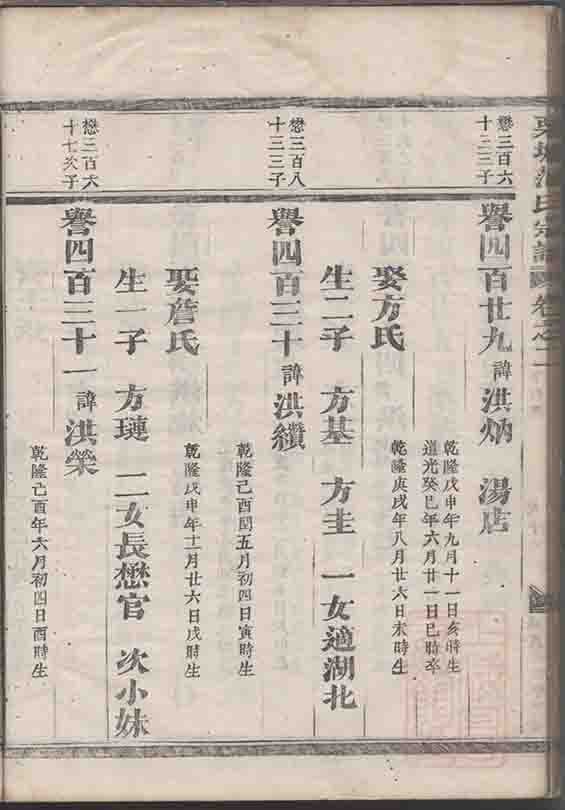 氏宗譜 卷之二
懋三百六
十三三子
譽四百廿九 諱洪炳 湯店
乾隆戊申年九月十一日亥時生
道光癸巳年六月廿一日巳時卒
娶方氏
乾隆庚戌年八月廿六日未時生
生二子 方基 方圭 一女適湖北
懋三百八
十三三子
譽四百三十 諱洪纘
乾隆己酉閏五月初四日寅時生
娶詹氏
乾隆戊申年十一月廿六日戌時生
生一子 方璉 二女長懋官 次小妹
懋三百六
十七次子
譽四百三十一 諱洪榮
乾隆己酉年六月初四日酉時生